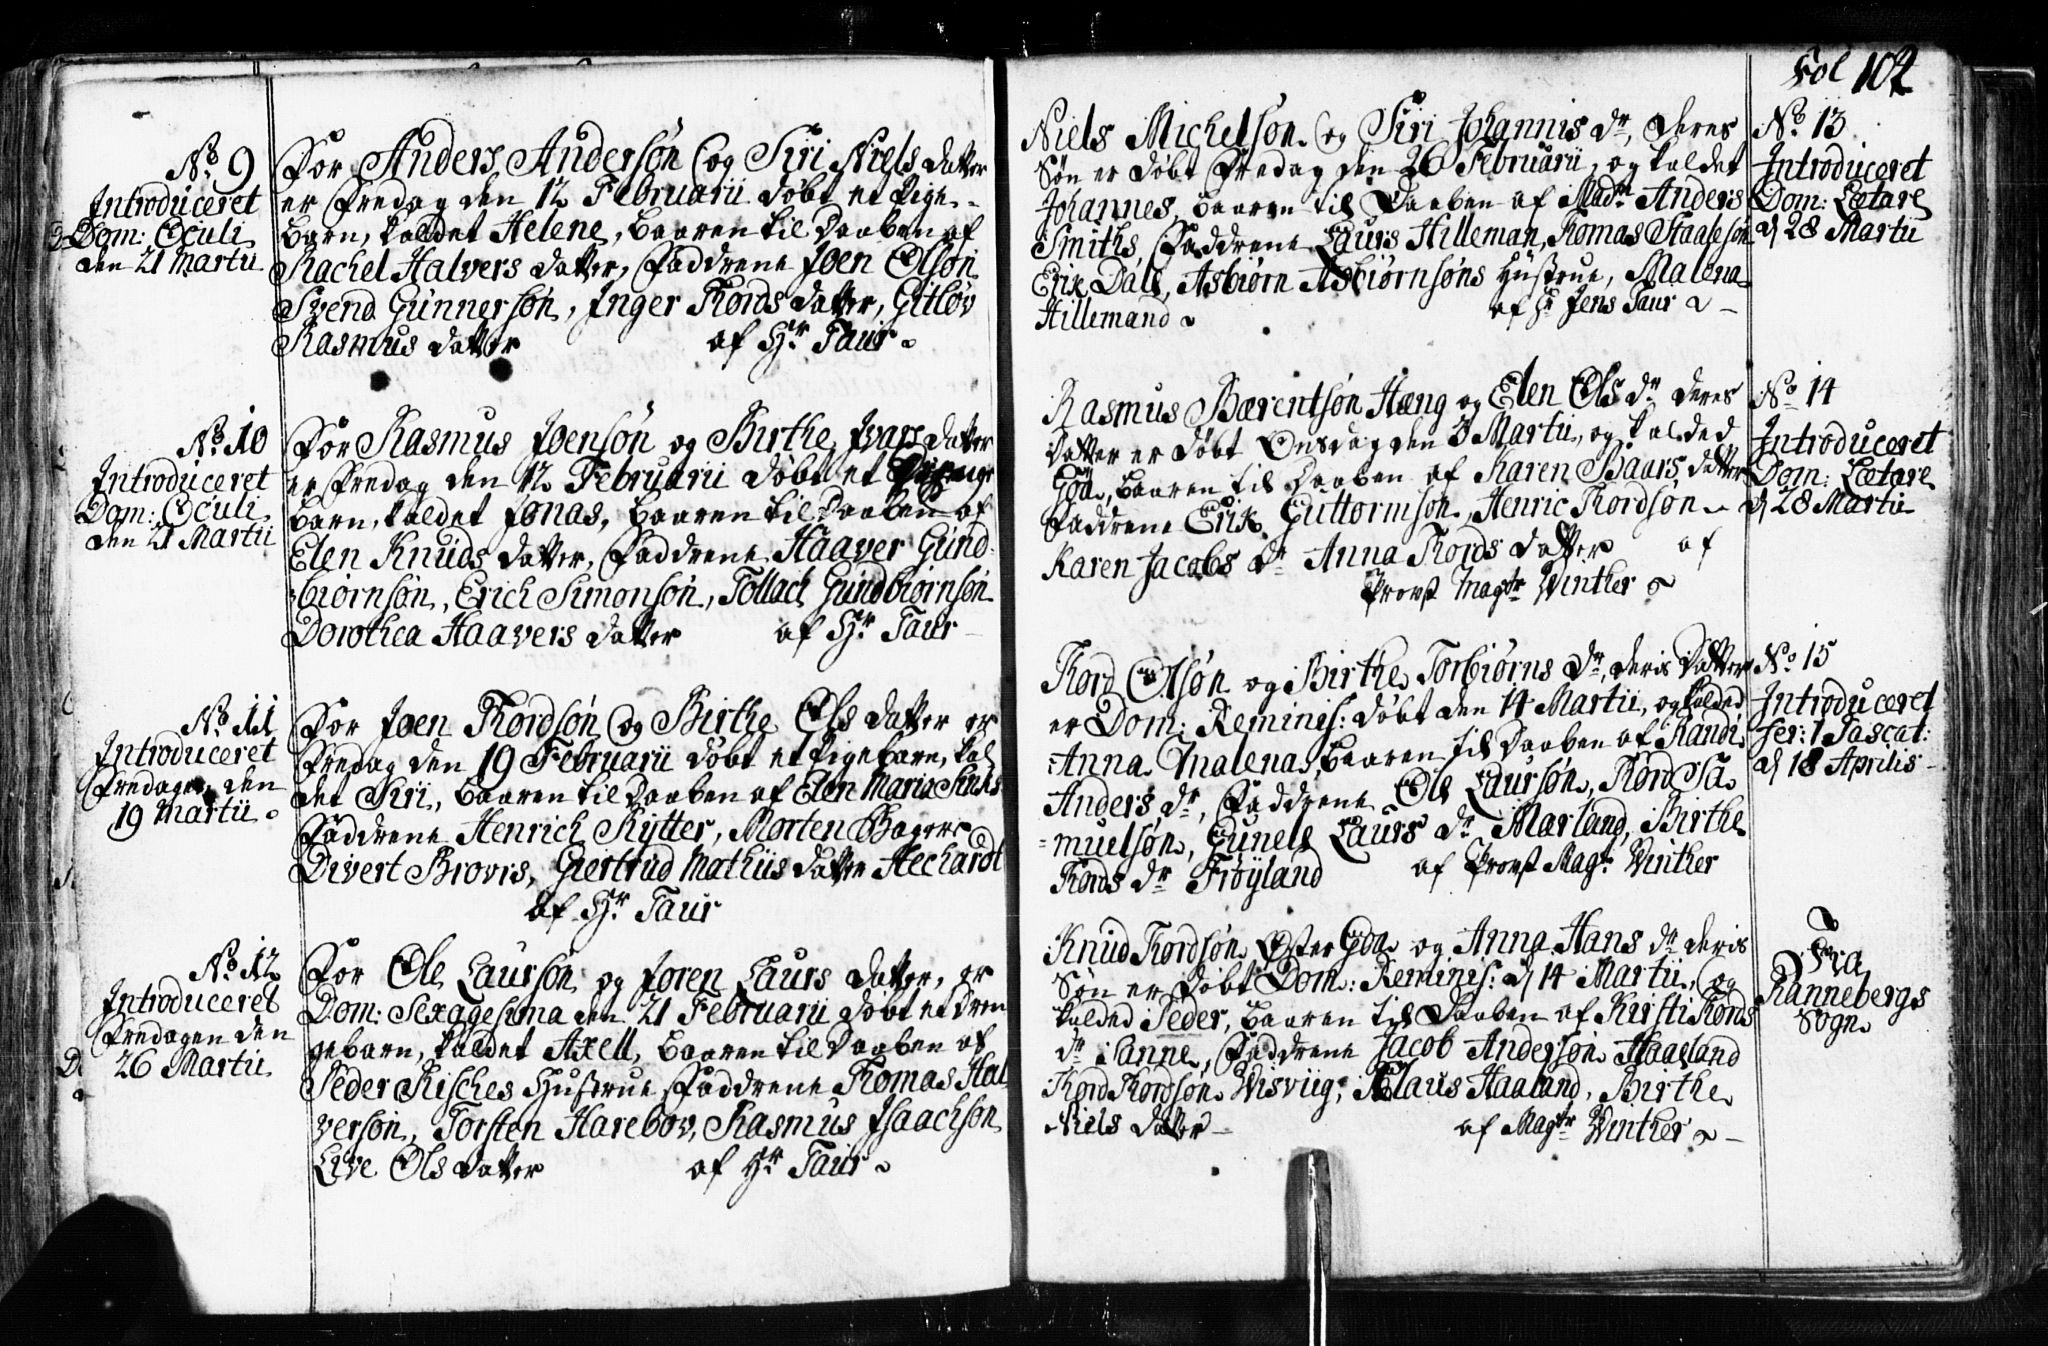 No. 9
Introduceret
Dom: Oculi
den 21 Martii
For Anders Andersøn og Siri Niels datter
er Fredag den 12 Februarii døbt et Pige-
barn, kaldet Helene, baaren til daaben af
Rachel Halvers datter, Faddrene Joen Olsøn
Svend Gunnersøn, Inger Tords datter, Gitløv
Rasmus datter af Hr. Taur
No. 10
Introduceret
Dom: Oculi
den 21 Martii
For Rasmus Joensøn og Birthe Ivars datter
er Fredag den 12 Februarii døbt et Drenge
barn, kaldet Jonas, baaren til daaben af
Elen Knuds datter, Faddrene Haaver Gund-
biørnsøn, Erich Simonsøn, Tollach Gundbiørnsøn
Dorothea Haavers datter af Hr. Taur
No. 11
Introduceret
Fredagen den
19 Martii
For Joen Thordsøn og Birthe Ols datter er
Fredag den 19 Februarii døbt et Pigebarn, kal
det Siri, baaren til daaben af Elen Maria
Faddrene Henrich Rytter, Morten Bager
Divert Brovis, Giertrud Mathiis datter Hechardt
af Hr. Taur
No. 12
Introduceret
Fredagen den
26 Martii
For Ole Laursøn og Joren Laurs datter, er
Dom: Sexagesima den 21 Februarii døbt et dren
gebarn, kaldet Axell, baaren til daaben af
Peder Risches Hustrue, Faddrene Thomas Hal
versøn, Torsten Harebov, Rasmus Isaachsøn
Live Ols datter af Hr. Taur
Fol 102
Niels Michelsøn og Siri Johannis dr, deres
Søn er døbt Fredag den 26 Februarii, og kaldet
Johannes, baaren til Daaben af Madm Anders
Smiths, Faddrene Laurs Hilleman, Thomas Staalesøn
Erik Dall, Asbiørn Asbiørnsøns Hustrue, Malena
Hillemand af Hr Jens Taur
No. 13
Introduceret
Dom: Lætare
d 28 Martii
Rasmus Bærentsøn Hæng og Elen Ols dr deres
datter er døbt Onsdag den 3 Martii, og kalded
baaren til Daaben af Karen Baars datter
Faddrene Erik Guttormsøn, Henric Thordsøn
Karen Jacobs dr Anna Thords datter af
Provst Magtr Winther
No. 14
Introduceret
Dom: Lætare
d 28 Martii
Thord Olsøn og Birthe Torbiørns dr, deris datter
er Dom: Reminis: døbt den 14 Martii, og kalded
Anna Malena, baaren til Daaben af Randi
Anders dr, Faddrene Ole Laursøn, Thord Sa
muelsøn, Gunele Laurs dr Mærland, Birthe
Thords dr Frøyland af Provst Magtr Winther
No. 15
Introduceret
fer: 1 Pascat:
d 18 Aprilis
Knud Thordsøn Øster og Anna Hans dr deris
Søn er døbt Dom: Reminis: d 14 Martii, og
kalded Peder, baaren til Daaben af Kirsti Thords
dr Nanne, Faddrene Jacob Andersøn Haaland
Thord Thordsøn Wisviig, Klaus Haaland, Birthe
Niels datter af Magtr Winther
Fra
Rannebergs
Sogn